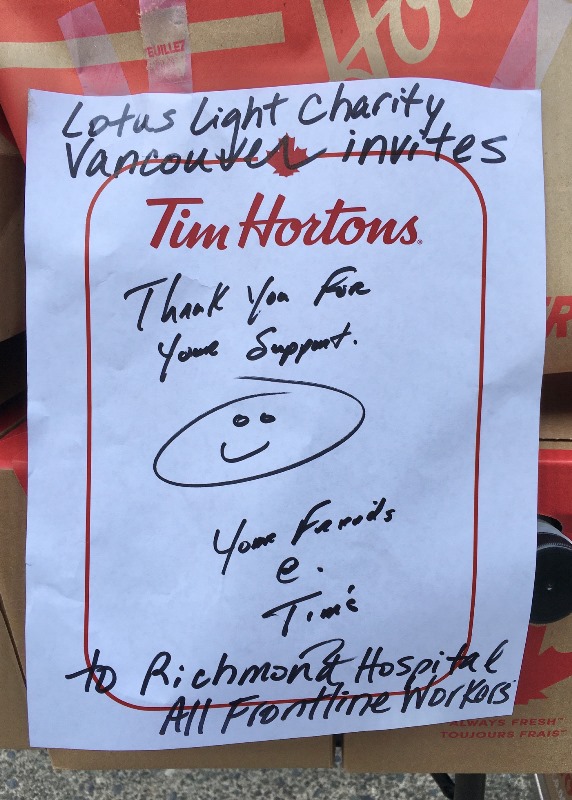 FEUILLE
Lotus Light Charity
Vancouver invites
Tim Hortons
Thank You For
Your Support.
Your Friends
@.
Tim's
to Richmond Hospital
All Frontline Workers
ALWAYS FRESH™
TOUJOURS FRAIS™